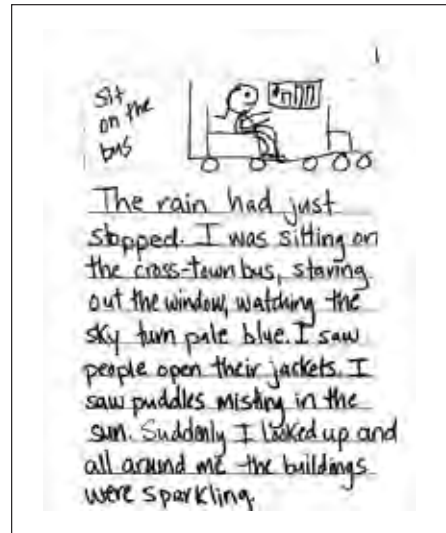 1
Sit
on the
bus
The rain had just
stopped. I was sitting on
the cross-town bus, staring
out the window, watching the
sky turn pale blue. I saw
people open their jackets. I
saw puddles misting in the
sun. Suddenly I looked up and
all around me the buildings
were sparkling.